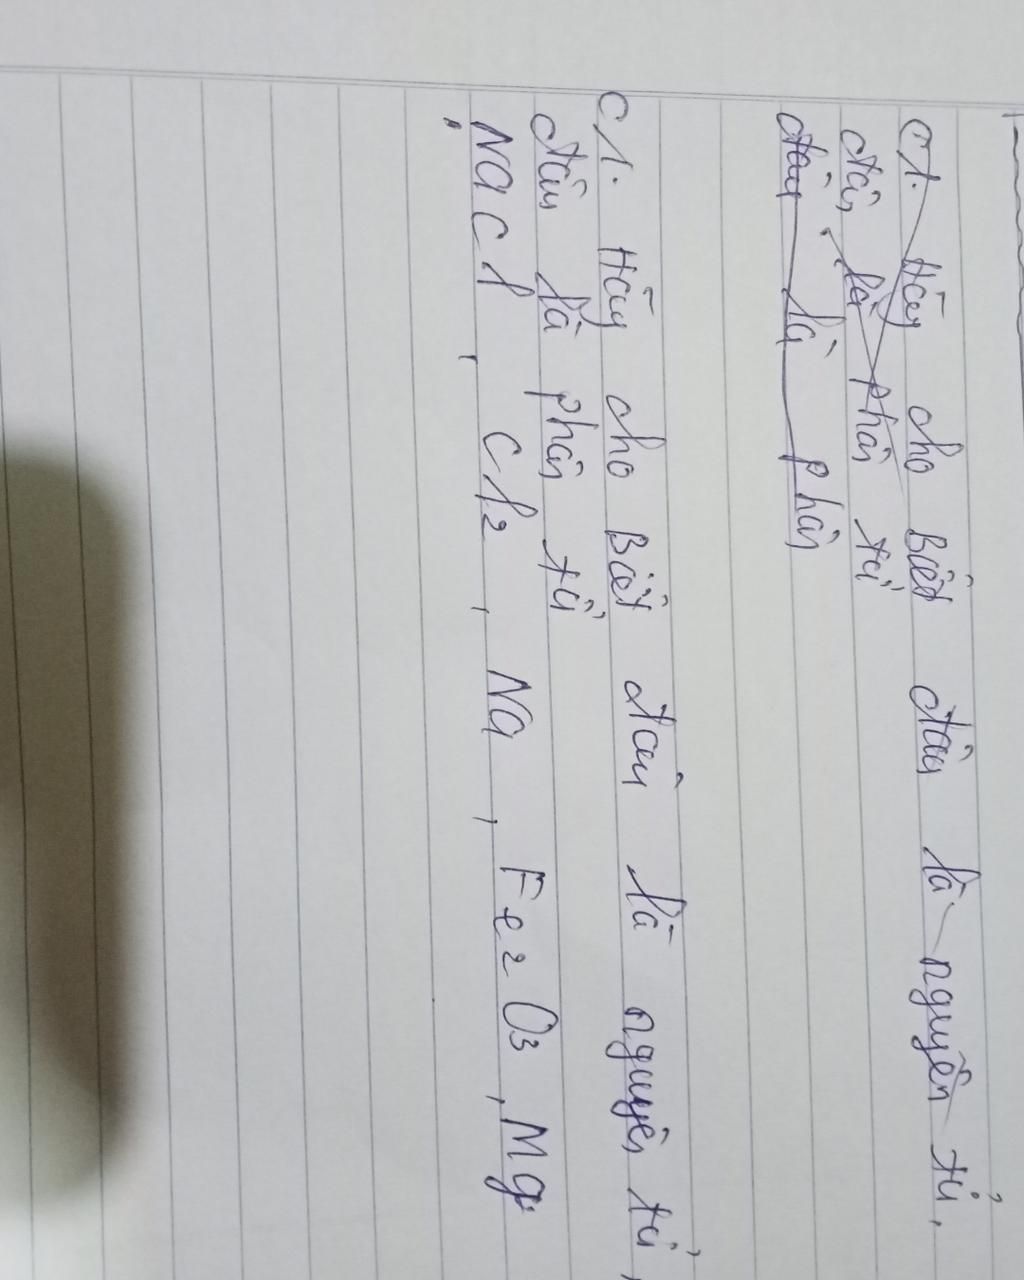 C1. Hãy cho Biết đâu là nguyên tử,
đâu là phân tử
đâu là phân
C1. Hãy cho Biết đâu là nguyên tử,
đâu là phân tử
NaCl, Cl2, Na, Fe2O3, Mg